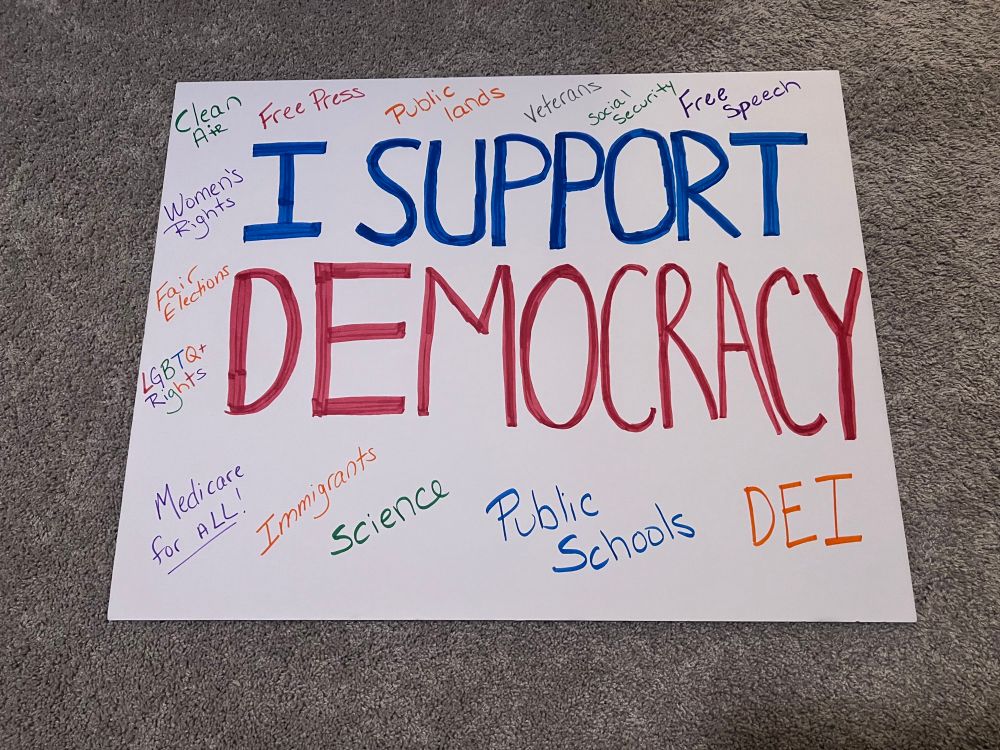 Clean
Air
Free Press
Public
lands
Veterans
Social
Security
Free
Speech
I SUPPORT
Women's
Rights
Fair
Elections
DEMOCRACY
LGBTQ+
Rights
Medicare
for ALL!
Immigrants
Science
Public
Schools
DEI